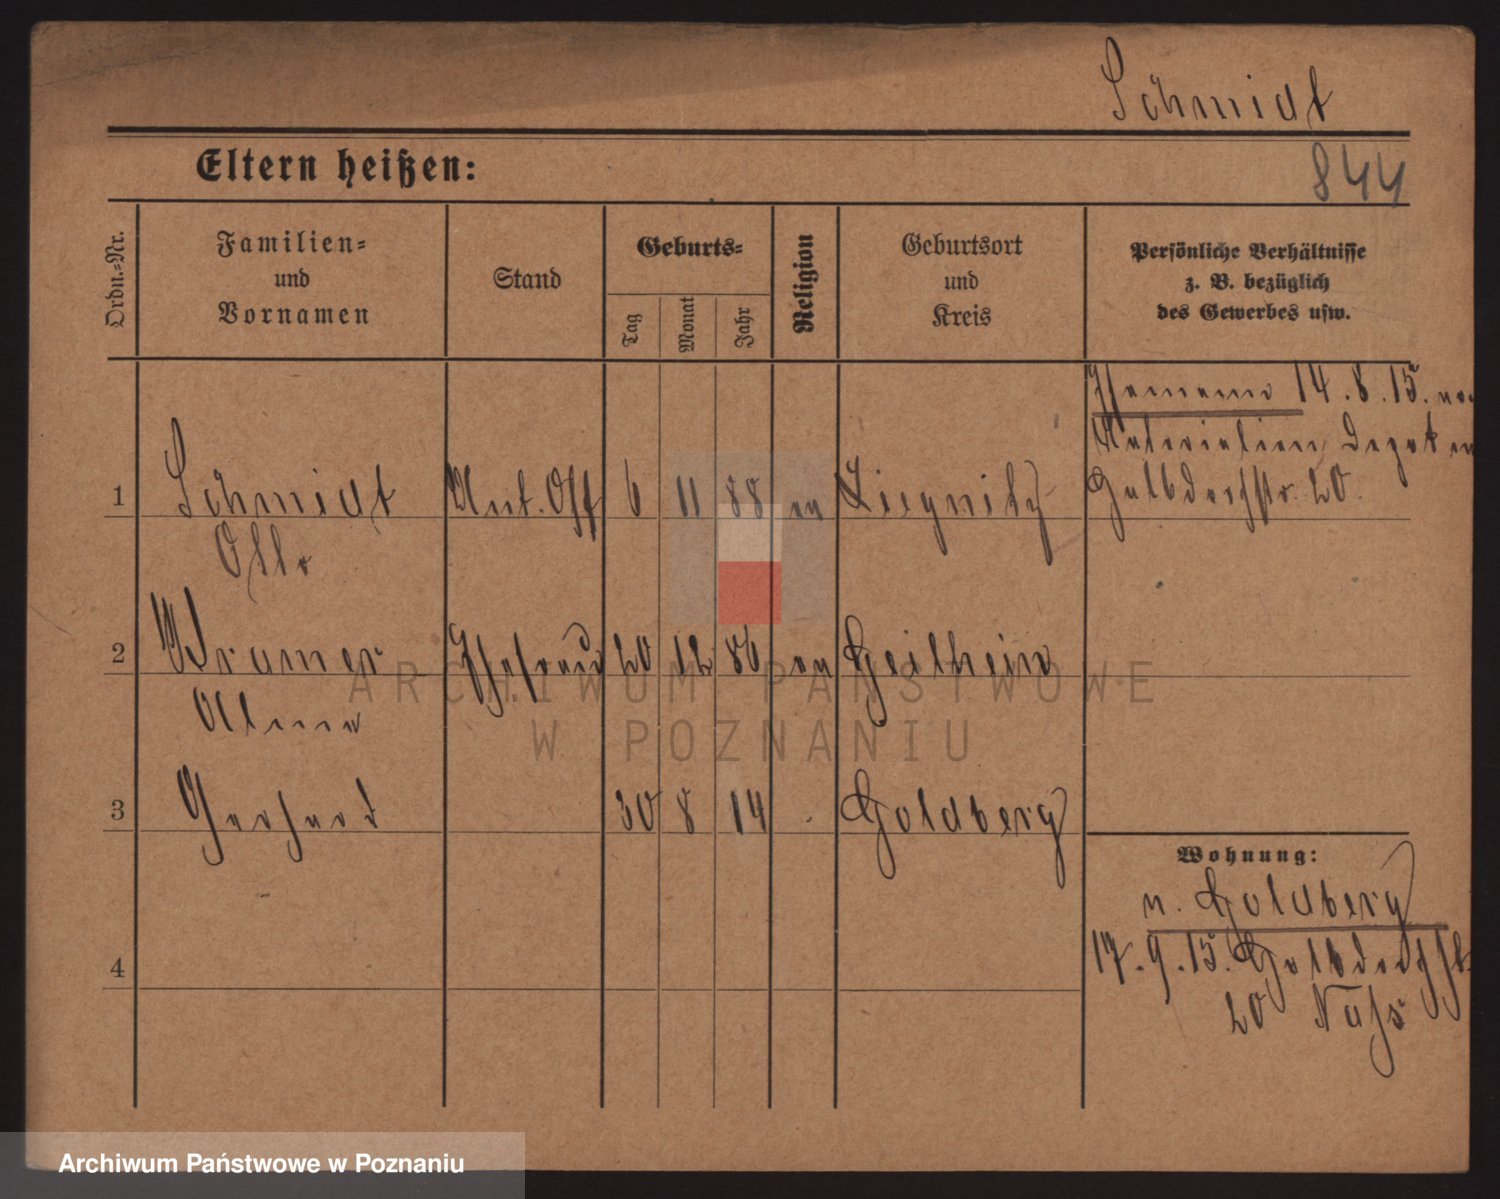 Schmidt
Eltern heißen:
844
Ordn.=Nr.
Familien=
und
Vornamen
Stand
Geburts=
Tag
Monat
Jahr
Religion
Geburtsort
und
Kreis
Persönliche Verhältnisse
z. B. bezüglich
des Gewerbes usw.
14.8.15.
Depot
20.
1 Schmidt Unt. Off 6 11 88 ev Liegnitz
Otto
2 Kramer Ehefrau 20 12 86 ev
Alma
3 Gerhard 30 8 14 Goldberg
Wohnung:
n. Goldberg
17.9.15.
20
4
ARCHIWUM PAŃSTWOWE
W POZNANIU
Archiwum Państwowe w Poznaniu